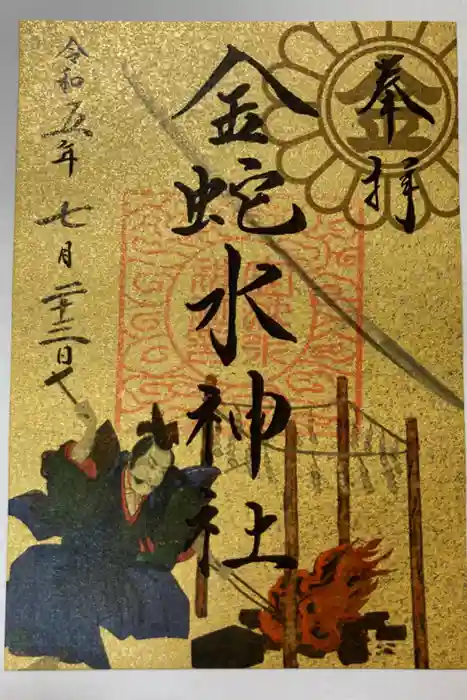 奉拝
金
金蛇水神社
令和五年七月二十二日